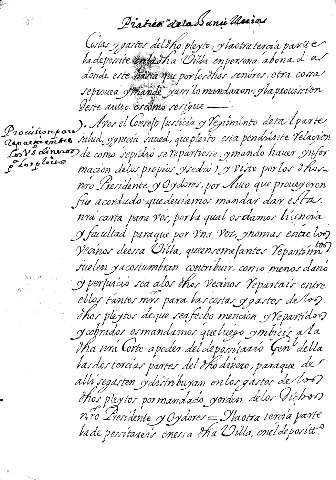 Pratica de la
Costas y gastos del dho pleyto, y la otra tercia parte se
la deposite en la dha Villa en persona abona da a
donde este hasta que por los dhos señores, otra cosa
se provea y mande y assi lo mandaron, y la provission
deste auto es como se sigue
Provission para
Repartir entre
los Vs dineros
p los pleitos
A vos el Consejo Justicia y Regimiento de tal parte
salud, y gracia saved, que pleito esta pendiente Relacion
de como se pidio se repartiere, y mando haver ynfor
macion de los propios y se dio, y visto por los dhos
nro Presidente y Oydores, por Auto que proveyeron
fue acordado que deviamos mandar dar esta
nra carta para vos, por la qual os damos licencia
y facultad para que por Vna vez, y no mas entre los
vecinos de essa Villa, que en semejantes Repartimien
tos
suelen y acostumbran contribuir, como menos daño
y perjuicio sea a los dhos vecinos Repartais entre
ellos tantos mrs para las costas y gastos de los
dhos pleytos de que se ha fecho mencion y Repartidos
y cobrados os mandamos que luego ymbieis a la
dha nra Corte a poder del depositario Genl de ella
las dos tercias partes del dho dinero, para que de
alli se gasten y distribuyan en los gastos de los
dhos pleytos por mandado, y orden de los dichos
nro Presidente y Oydores = Y la otra tercia parte
la de pessitareis en essa dha Villa, en el deposito